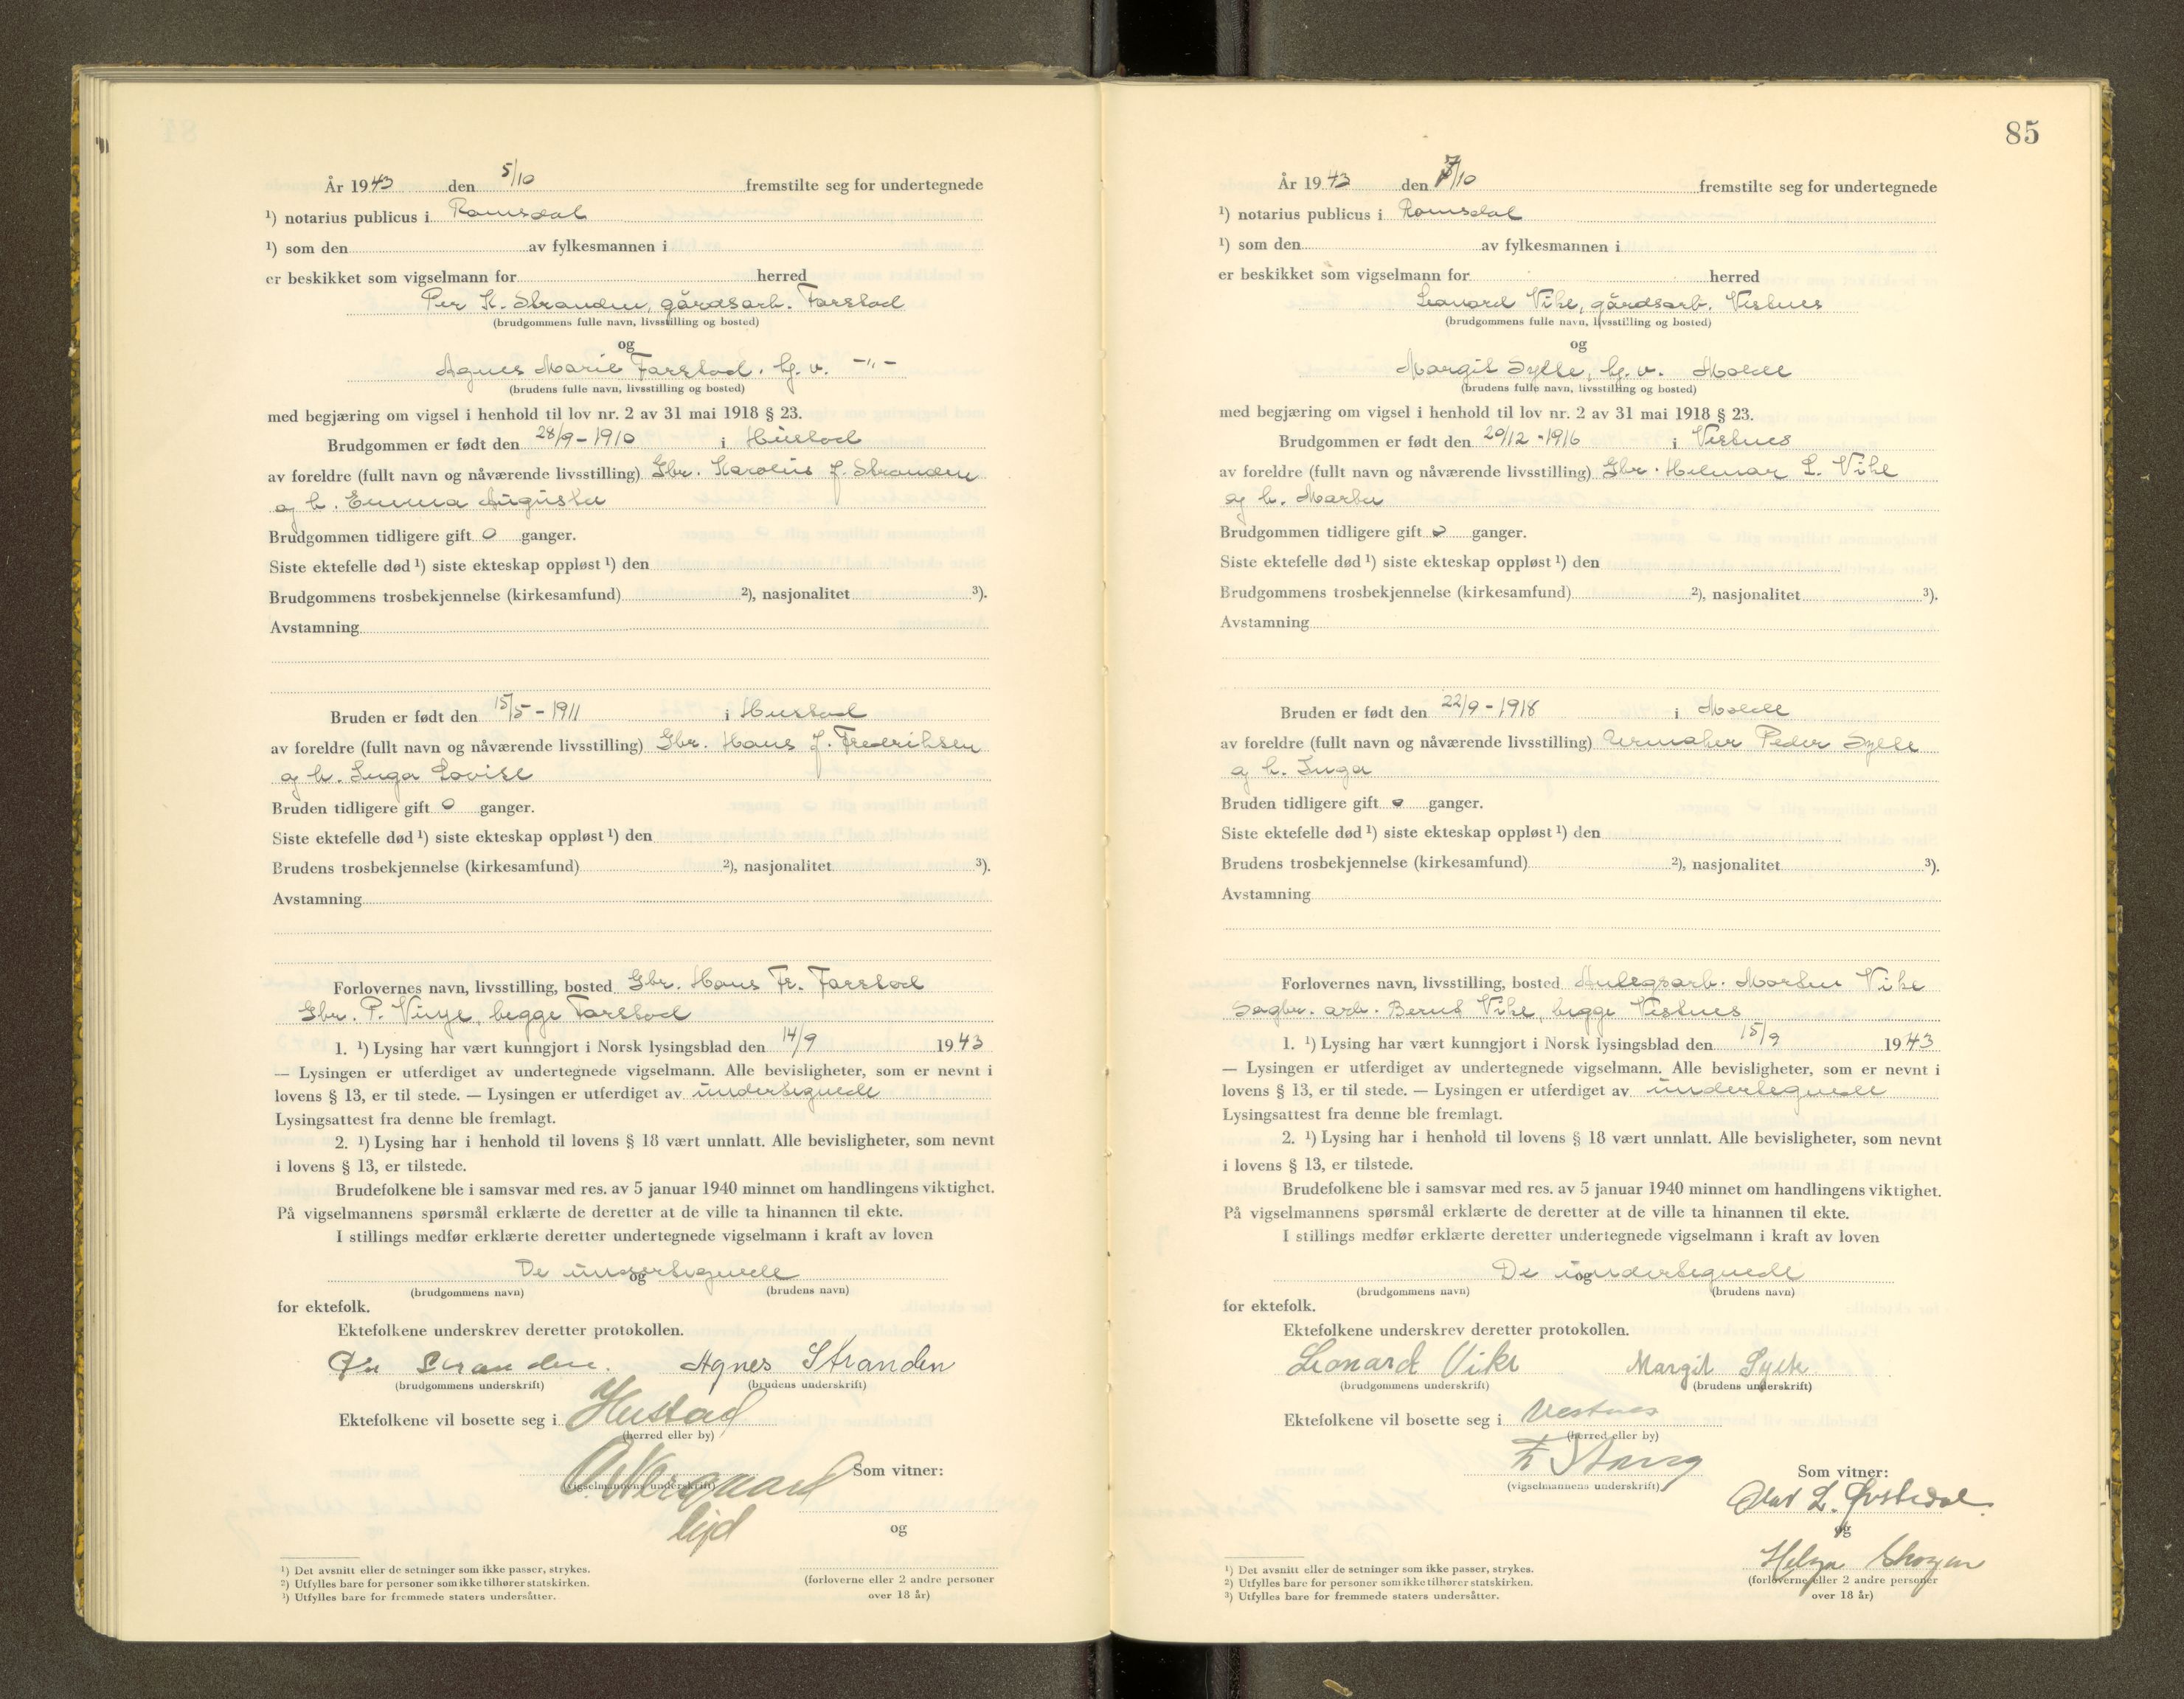 År 1943 den 5/10 fremstilte seg for undertegnede
¹) notarius publicus i Romsdal
¹) som den av fylkesmannen i
er beskikket som vigselmann for herred
Per K. Stranden, gårdsarb. Farstad
(brudgommens fulle navn, livsstilling og bosted)
og
Agnes Marie Farstad, hj. v. -"-
(brudens fulle navn, livsstilling og bosted)
med begjæring om vigsel i henhold til lov nr. 2 av 31 mai 1918 § 23.
Brudgommen er født den 28/9-1910 i Hustad
av foreldre (fullt navn og nåværende livsstilling) Gbr. Karolius J. Stranden
og h. Emma Augusta
Brudgommen tidligere gift 0 ganger.
Siste ektefelle død ¹) siste ekteskap oppløst ¹) den
Brudgommens trosbekjennelse (kirkesamfund) ²), nasjonalitet ³).
Avstamning
Bruden er født den 15/5-1911 i Hustad
av foreldre (fullt navn og nåværende livsstilling) Gbr. Hans J. Fredriksen
og h. Inga Lovise
Bruden tidligere gift 0 ganger.
Siste ektefelle død ¹) siste ekteskap oppløst ¹) den
Brudens trosbekjennelse (kirkesamfund) ²), nasjonalitet ³).
Avstamning
Forlovernes navn, livsstilling, bosted Gbr. Hans Fr. Farstad
Gbr. P. Vinje, begge Farstad
1. ¹) Lysing har vært kunngjort i Norsk lysingsblad den 14/9 1943
— Lysingen er utferdiget av undertegnede vigselmann. Alle bevisligheter, som er nevnt i
lovens § 13, er til stede. — Lysingen er utferdiget av undertegnede
Lysingsattest fra denne ble fremlagt.
2. ¹) Lysing har i henhold til lovens § 18 vært unnlatt. Alle bevisligheter, som nevnt
i lovens § 13, er tilstede.
Brudefolkene ble i samsvar med res. av 5 januar 1940 minnet om handlingens viktighet.
På vigselmannens spørsmål erklærte de deretter at de ville ta hinannen til ekte.
I stillings medfør erklærte deretter undertegnede vigselmann i kraft av loven
De undertegnede
og
(brudgommens navn) (brudens navn)
for ektefolk.
Ektefolkene underskrev deretter protokollen.
Per Stranden. Agnes Stranden
(brudgommens underskrift) (brudens underskrift)
Ektefolkene vil bosette seg i Hustad
(herred eller by)
Som vitner:
(vigselmannens underskrift)
og
¹) Det avsnitt eller de setninger som ikke passer, strykes.
²) Utfylles bare for personer som ikke tilhører statskirken.
³) Utfylles bare for fremmede staters undersåtter.
(forloverne eller 2 andre personer
over 18 år)
85
År 1943 den 7/10 fremstilte seg for undertegnede
¹) notarius publicus i Romsdal
¹) som den av fylkesmannen i
er beskikket som vigselmann for herred
Leonard Vike, gårdsarb. Vestnes
(brudgommens fulle navn, livsstilling og bosted)
og
Margit Sylte, hj. v. Molde
(brudens fulle navn, livsstilling og bosted)
med begjæring om vigsel i henhold til lov nr. 2 av 31 mai 1918 § 23.
Brudgommen er født den 20/12-1916 i Vestnes
av foreldre (fullt navn og nåværende livsstilling) Gbr. Hilmar L. Vike
og h. Marta
Brudgommen tidligere gift 0 ganger.
Siste ektefelle død ¹) siste ekteskap oppløst ¹) den
Brudgommens trosbekjennelse (kirkesamfund) ²), nasjonalitet ³).
Avstamning
Bruden er født den 22/9-1918 i Molde
av foreldre (fullt navn og nåværende livsstilling) Urmaker Peder Sylte
og h. Inga
Bruden tidligere gift 0 ganger.
Siste ektefelle død ¹) siste ekteskap oppløst ¹) den
Brudens trosbekjennelse (kirkesamfund) ²), nasjonalitet ³).
Avstamning
Forlovernes navn, livsstilling, bosted Anlegsarb. Morten Vike
Sagbr. arb. Bernt Vike, begge Vestnes
1. ¹) Lysing har vært kunngjort i Norsk lysingsblad den 15/9 1943
— Lysingen er utferdiget av undertegnede vigselmann. Alle bevisligheter, som er nevnt i
lovens § 13, er til stede. — Lysingen er utferdiget av undertegnede
Lysingsattest fra denne ble fremlagt.
2. ¹) Lysing har i henhold til lovens § 18 vært unnlatt. Alle bevisligheter, som nevnt
i lovens § 13, er tilstede.
Brudefolkene ble i samsvar med res. av 5 januar 1940 minnet om handlingens viktighet.
På vigselmannens spørsmål erklærte de deretter at de ville ta hinannen til ekte.
I stillings medfør erklærte deretter undertegnede vigselmann i kraft av loven
De undertegnede
og
(brudgommens navn) (brudens navn)
for ektefolk.
Ektefolkene underskrev deretter protokollen.
Leonard Vike Margit Sylte
(brudgommens underskrift) (brudens underskrift)
Ektefolkene vil bosette seg i Vestnes
(herred eller by)
Som vitner:
(vigselmannens underskrift)
Olav L.
og
Helga
¹) Det avsnitt eller de setninger som ikke passer, strykes.
²) Utfylles bare for personer som ikke tilhører statskirken.
³) Utfylles bare for fremmede staters undersåtter.
(forloverne eller 2 andre personer
over 18 år)